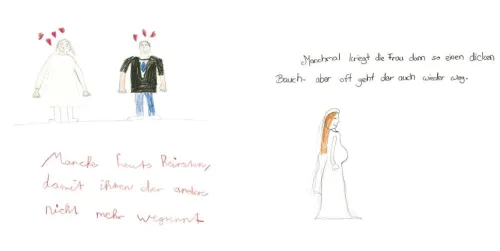 Manche heuts Heiraten,
damit ihnen der andere
nicht mehr wegrennt
Manchmal kriegt die Frau dann so einen dicken
Bauch- aber oft geht der auch wieder weg.